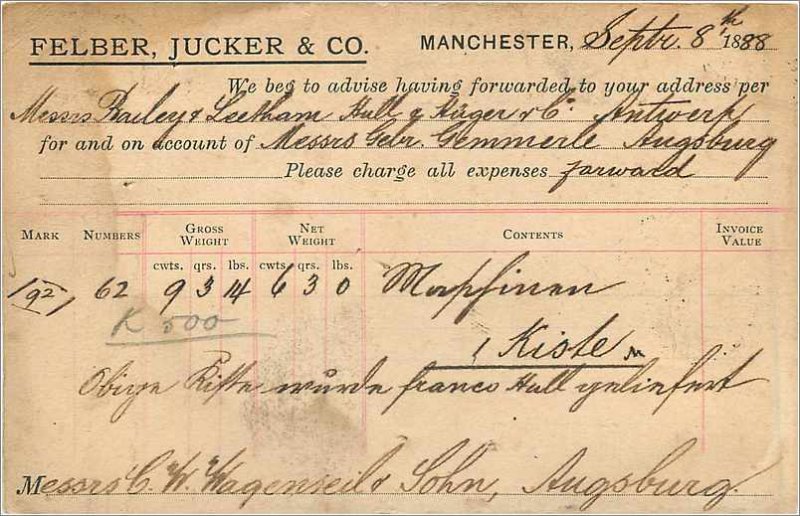 FELBER, JUCKER & CO. MANCHESTER, Septr. 8th 1888
We beg to advise having forwarded to your address per
Messrs Bailey & Leetham Hull & Hüger & Co Antwerp
for and on account of Messrs Gebr. Gemmerle Augsburg
Please charge all expenses forward
MARK NUMBERS GROSS WEIGHT NET WEIGHT CONTENTS INVOICE VALUE
cwts. qrs. lbs. cwts. qrs. lbs.
92 62 9 3 14 6 3 0 Maschinen
K 500
1 Kiste
Obige Kiste wurde franco Hull geliefert
Messrs C. W. Wagenseil & Sohn, Augsburg.